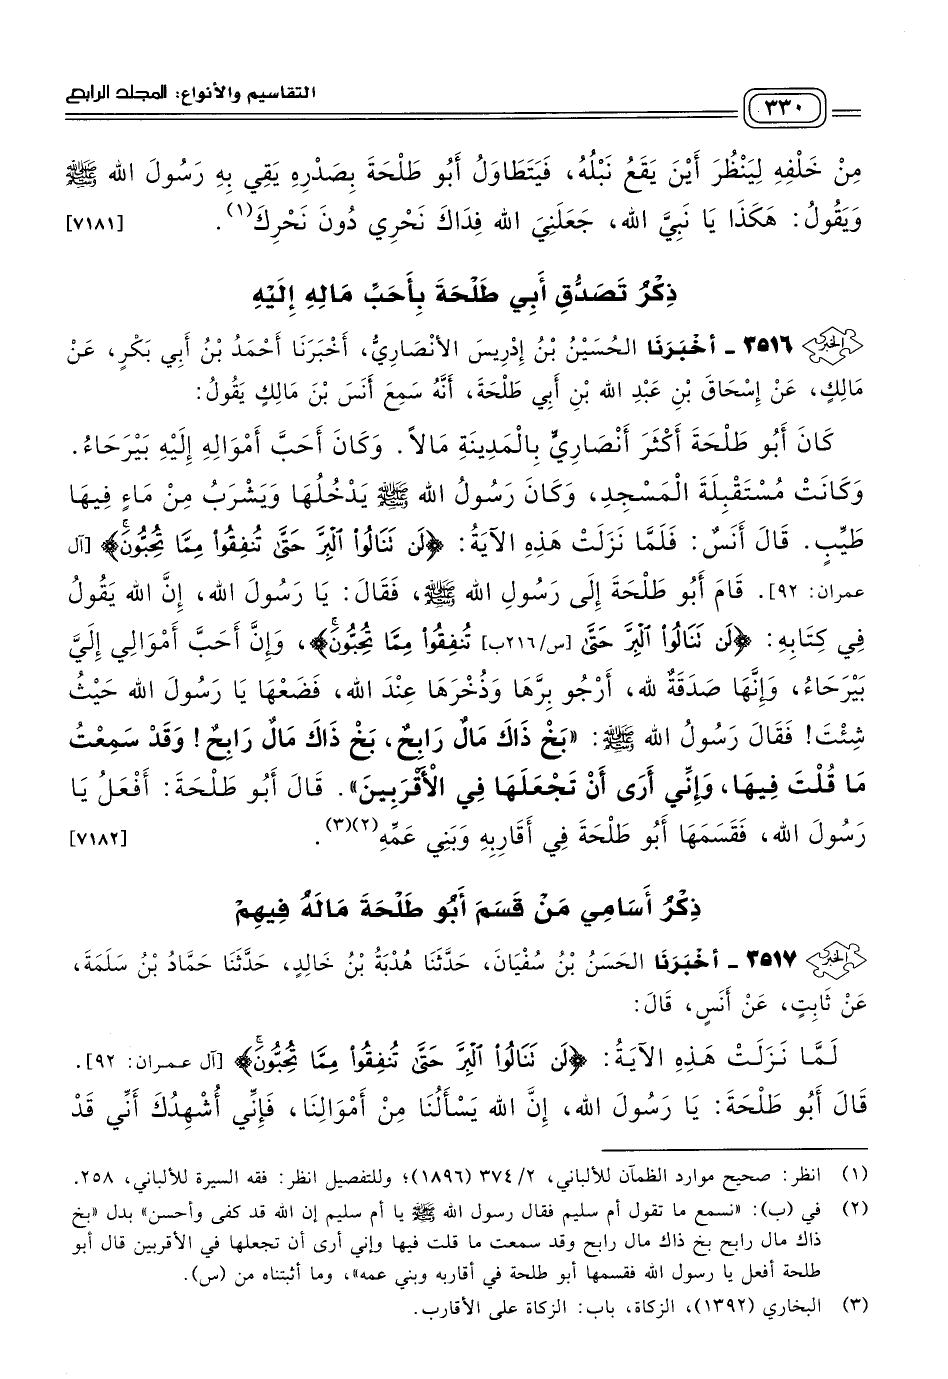 ٣٣٠ التقاسيم والأنواع: المجلد الرابع
مِنْ خَلْفِهِ لِيَنْظُرَ أَيْنَ يَقَعُ نَبْلُهُ، فَيَتَطَاوَلُ أَبُو طَلْحَةَ بِصَدْرِهِ يَقِي بِهِ رَسُولَ الله ﷺ
وَيَقُولُ: هَكَذَا يَا نَبِيَّ الله، جَعَلَنِيَ الله فِدَاكَ نَحْرِي دُونَ نَحْرِكَ(١). [٧١٨١]
ذِكْرُ تَصَدُّقِ أَبِي طَلْحَةَ بِأَحَبِّ مَالِهِ إِلَيْهِ
٣٥١٦ - أَخْبَرَنَا الحُسَيْنُ بْنُ إِدْرِيسَ الأَنْصَارِيُّ، أَخْبَرَنَا أَحْمَدُ بْنُ أَبِي بَكْرٍ، عَنْ
مَالِكٍ، عَنْ إِسْحَاقَ بْنِ عَبْدِ الله بْنِ أَبِي طَلْحَةَ، أَنَّهُ سَمِعَ أَنَسَ بْنَ مَالِكٍ يَقُولُ:
كَانَ أَبُو طَلْحَةَ أَكْثَرَ أَنْصَارِيٍّ بِالْمَدِينَةِ مَالاً. وَكَانَ أَحَبَّ أَمْوَالِهِ إِلَيْهِ بَيْرَحَاءُ.
وَكَانَتْ مُسْتَقْبِلَةَ الْمَسْجِدِ، وَكَانَ رَسُولُ الله ﷺ يَدْخُلُهَا وَيَشْرَبُ مِنْ مَاءٍ فِيهَا
طَيِّبٍ. قَالَ أَنَسٌ: فَلَمَّا نَزَلَتْ هَذِهِ الآيَةُ: ﴿لَن نَنَالُواْ ٱلْبِرَّ حَتَّىٰ تُنفِقُواْ مِمَّا تُحِبُّونَۚ﴾ [آل
عمران: ٩٢]. قَامَ أَبُو طَلْحَةَ إِلَى رَسُولِ الله ﷺ، فَقَالَ: يَا رَسُولَ الله، إِنَّ الله يَقُولُ
فِي كِتَابِهِ: ﴿لَن نَنَالُواْ ٱلْبِرَّ حَتَّىٰ [س/٢١٦ب] تُنفِقُواْ مِمَّا تُحِبُّونَۚ﴾، وَإِنَّ أَحَبَّ أَمْوَالِي إِلَيَّ
بَيْرَحَاءُ، وَإِنَّهَا صَدَقَةٌ لله، أَرْجُو بِرَّهَا وَذُخْرَهَا عِنْدَ الله، فَضَعْهَا يَا رَسُولَ الله حَيْثُ
شِئْتَ! فَقَالَ رَسُولُ الله ﷺ: «بَخْ ذَاكَ مَالٌ رَابِحٌ، بَخْ ذَاكَ مَالٌ رَابِحٌ! وَقَدْ سَمِعْتُ
مَا قُلْتَ فِيهَا، وَإِنِّي أَرَى أَنْ تَجْعَلَهَا فِي الْأَقْرَبِينَ». قَالَ أَبُو طَلْحَةَ: أَفْعَلُ يَا
رَسُولَ الله، فَقَسَمَهَا أَبُو طَلْحَةَ فِي أَقَارِبِهِ وَبَنِي عَمِّهِ(٢)(٣). [٧١٨٢]
ذِكْرُ أَسَامِي مَنْ قَسَمَ أَبُو طَلْحَةَ مَالَهُ فِيهِمْ
٣٥١٧ - أَخْبَرَنَا الحَسَنُ بْنُ سُفْيَانَ، حَدَّثَنَا هُدْبَةُ بْنُ خَالِدٍ، حَدَّثَنَا حَمَّادُ بْنُ سَلَمَةَ،
عَنْ ثَابِتٍ، عَنْ أَنَسٍ، قَالَ:
لَمَّا نَزَلَتْ هَذِهِ الآيَةُ: ﴿لَن نَنَالُواْ ٱلْبِرَّ حَتَّىٰ تُنفِقُواْ مِمَّا تُحِبُّونَۚ﴾ [آل عمران: ٩٢].
قَالَ أَبُو طَلْحَةَ: يَا رَسُولَ الله، إِنَّ الله يَسْأَلُنَا مِنْ أَمْوَالِنَا، فَإِنِّي أُشْهِدُكَ أَنِّي قَدْ
(١) انظر: صحيح موارد الظمآن للألباني، ٢/ ٣٧٤ (١٨٩٦)؛ وللتفصيل انظر: فقه السيرة للألباني، ٢٥٨.
(٢) في (ب): «نسمع ما تقول أم سليم فقال رسول الله ﷺ يا أم سليم إن الله قد كفى وأحسن» بدل «بخ
ذاك مال رابح بخ ذاك مال رابح وقد سمعت ما قلت فيها وإني أرى أن تجعلها في الأقربين قال أبو
طلحة أفعل يا رسول الله فقسمها أبو طلحة في أقاربه وبني عمه»، وما أثبتناه من (س).
(٣) البخاري (١٣٩٢)، الزكاة، باب: الزكاة على الأقارب.